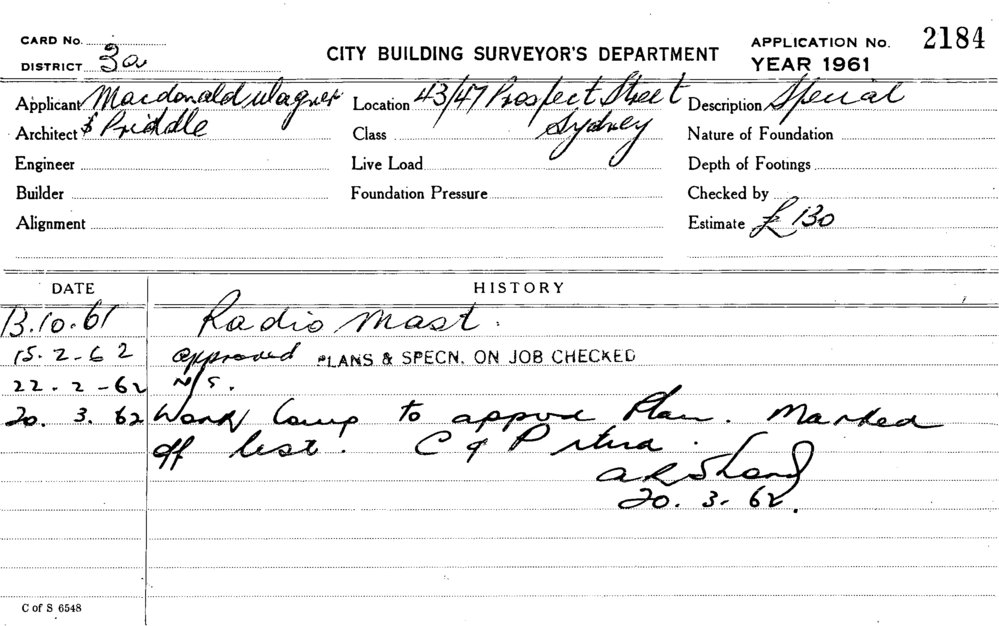 CARD No.
DISTRICT 3a
CITY BUILDING SURVEYOR'S DEPARTMENT
APPLICATION No. 2184
YEAR 1961
Applicant Macdonald Wagner Location 43/47 Prospect Street Description Special
Architect & Priddle Class Sydney Nature of Foundation
Engineer Live Load Depth of Footings
Builder Foundation Pressure Checked by
Alignment Estimate £130
DATE HISTORY
13.10.61 Radio Mast.
15.2.62 approved PLANS & SPECN. ON JOB CHECKED
22.2-62 N/S.
20.3.62 Work Comp to appvd Plan. Marked
off list. C of P
20.3.62.
C of S 6548